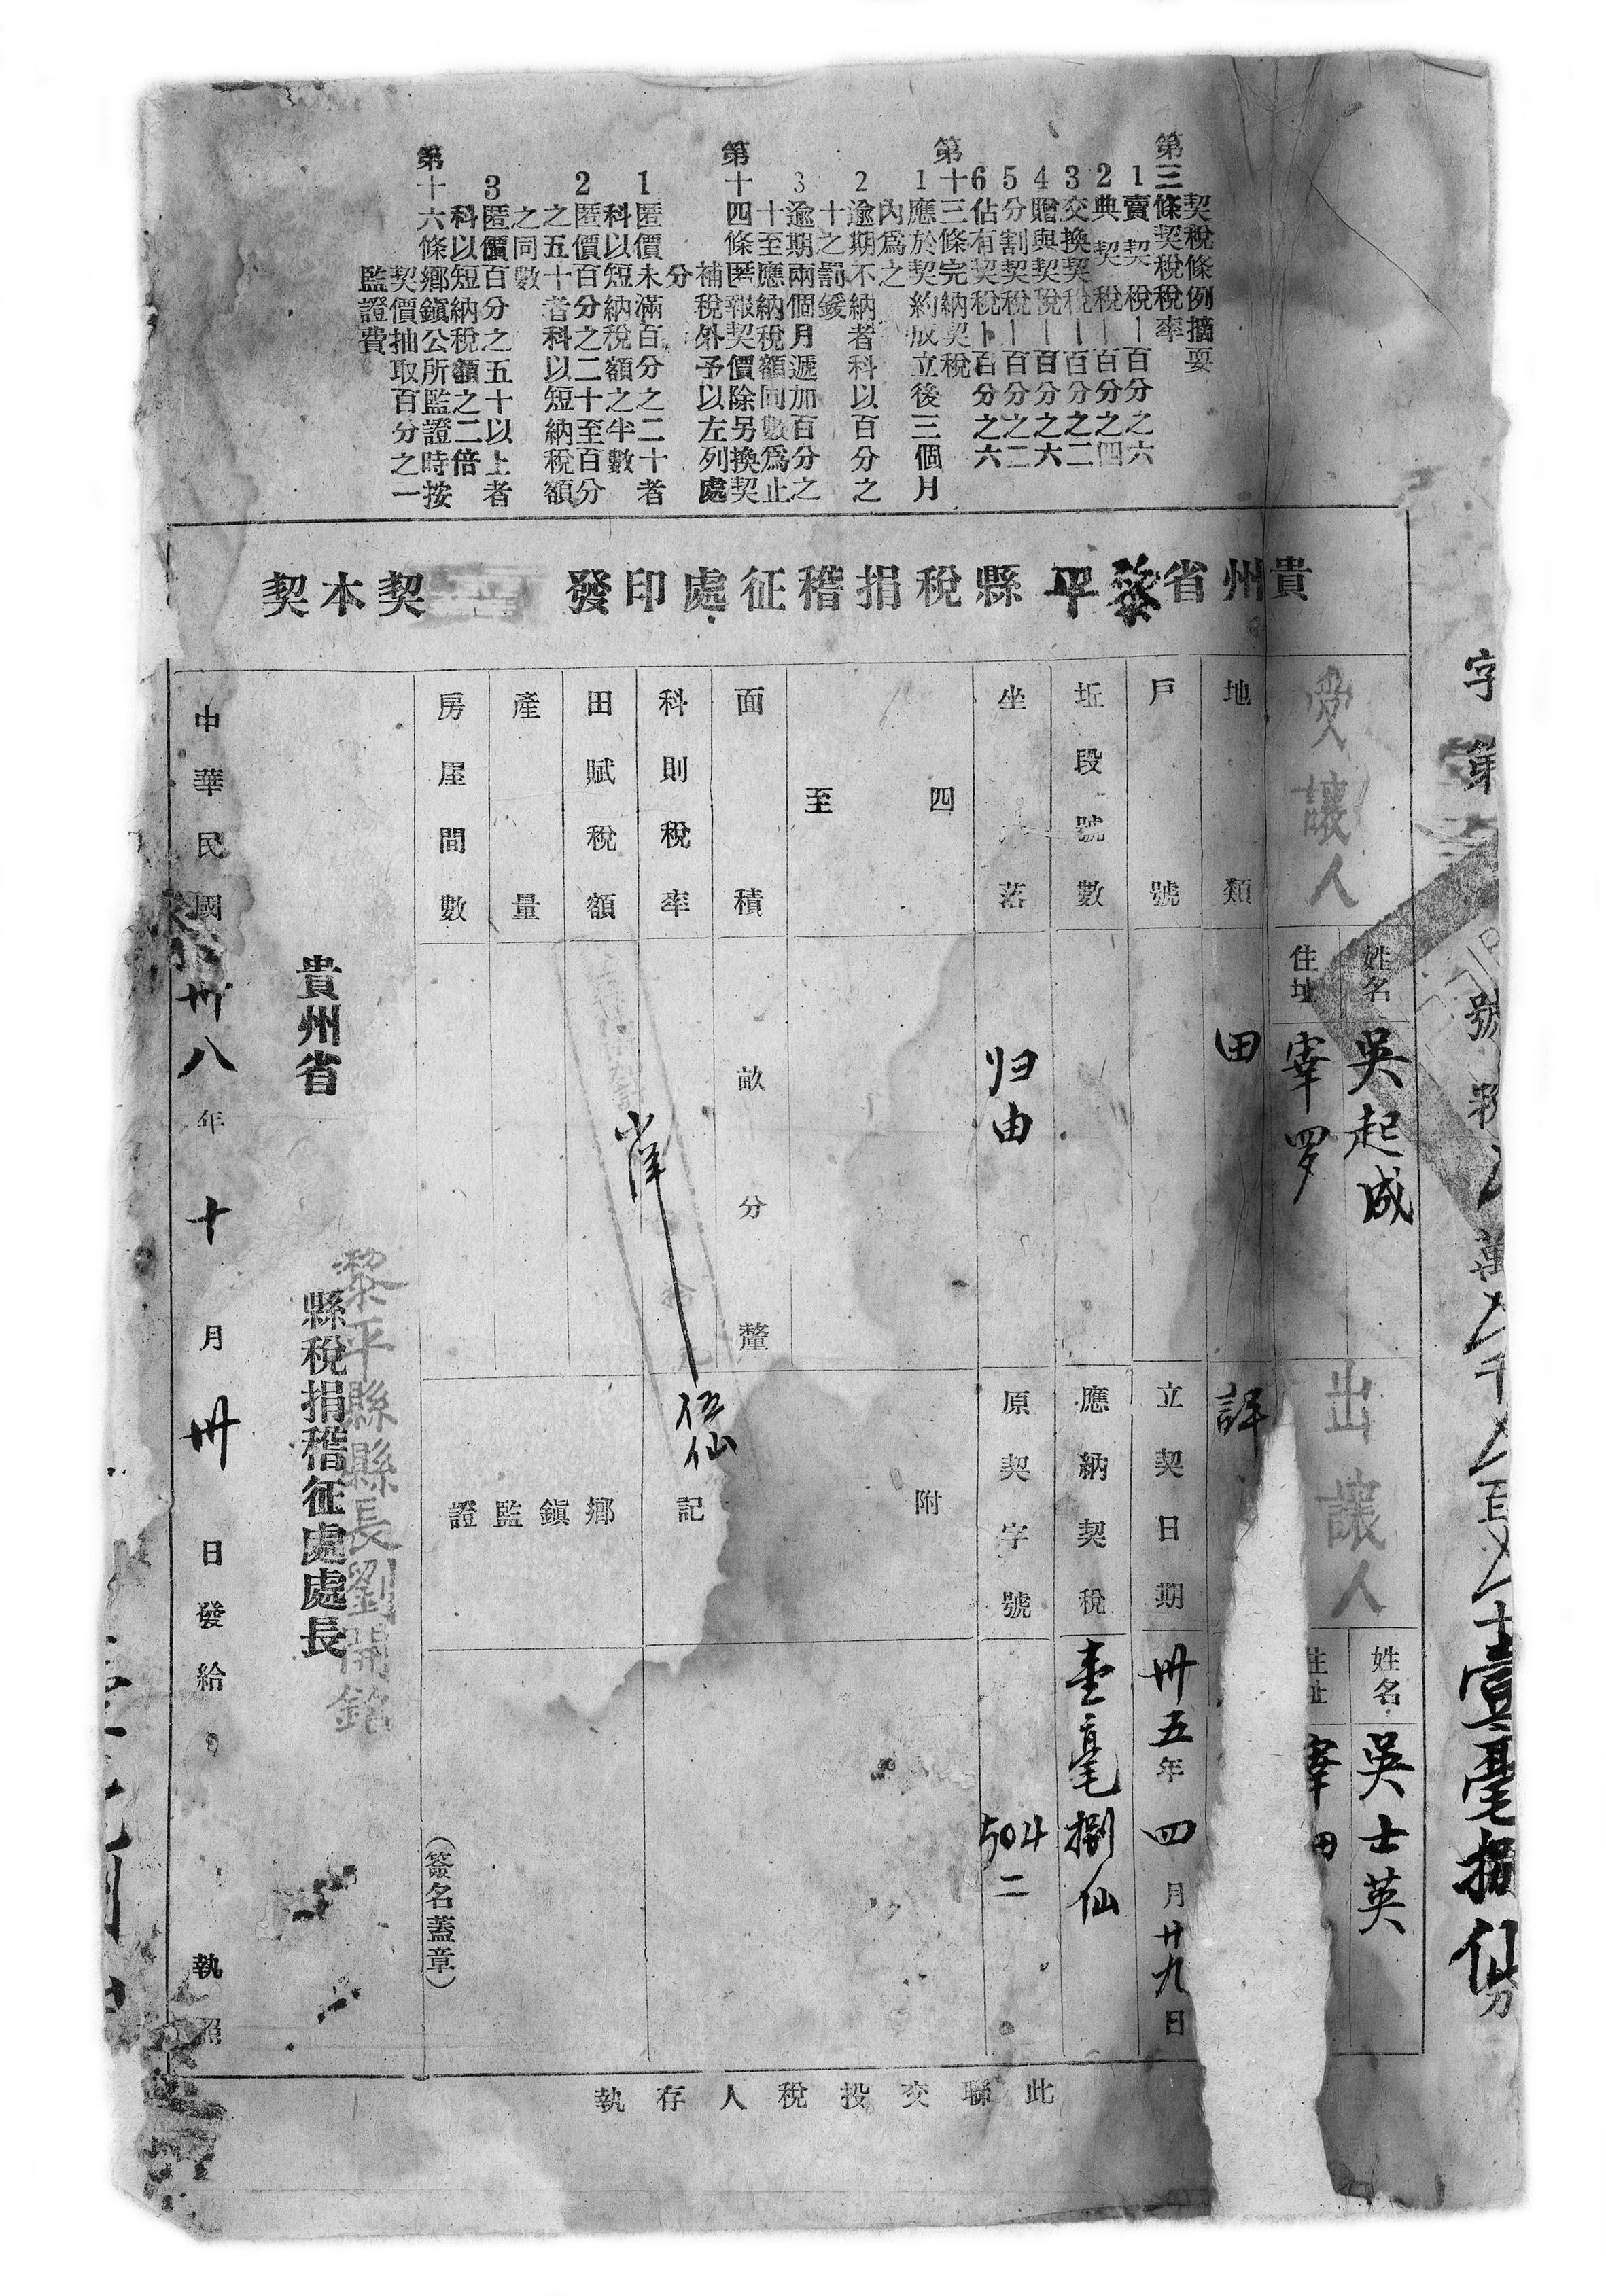 契稅條例摘要
第三條契稅稅率
1賣契稅—百分之六
2典契稅—百分之四
3交換契稅—百分之二
4贈與契稅—百分之六
5分割契稅—百分之二
6佔有契稅—百分之六
第十三條完納契稅
1應於契約成立後三個月
內為之
2逾期不納者科以百分之
十之罰鍰
3逾期兩個月遞加百分之
十至應納稅額同數為止
第十四條匿報契價除另換契
補稅外予以左列處
分
1匿價未滿百分之二十者
科以短納稅額之半數
2匿價百分之二十至百分
之五十者科以短納稅額
之同數
3匿價百分之五十以上者
科以短納稅額之二倍
第十六條鄉鎮公所監證時按
契價抽取百分之一
監證費
貴州省黎平縣稅捐稽征處印發
契本契
字第
號
萬
千
百
十
壹毫捌仙
分
受讓人
姓名
吳起成
住址
宰罗
出讓人
姓名
吳士英
住址
宰
地類
田
詳
戶號
立契日期
卅五年四月廿九日
坵段號數
應納契稅
壹毫捌仙
坐落
归由
原契字號
504
二
四至
附記
面積
畝分釐
科則稅率
伍仙
田賦稅額
產量
房屋間數
鄉鎮監證
（簽名蓋章）
黎平縣縣長劉開銘
貴州省
縣稅捐稽征處處長
中華民國卅八年十月卅日發給
執照
此聯交投稅人存執